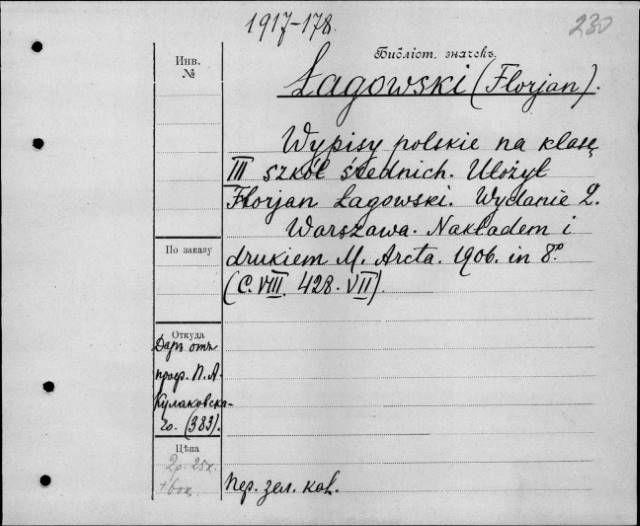 1917-178.
230
Библіот. значекъ.
Инв.
№
Łagowski (Florjan).
Wypisy polskie na klasę
III szkół średnich. Ułożył
Florjan Łagowski. Wydanie 2.
Warszawa. Nakładem i
drukiem M. Arcta. 1906. in 8°.
(C. VIII. 428. VII).
По заказу
Откуда
Даръ отъ
проф. П. А.
Кулаковска-
го. (383).
Цѣна
2р. 25к.
+60к.
Пер. зел. кол.